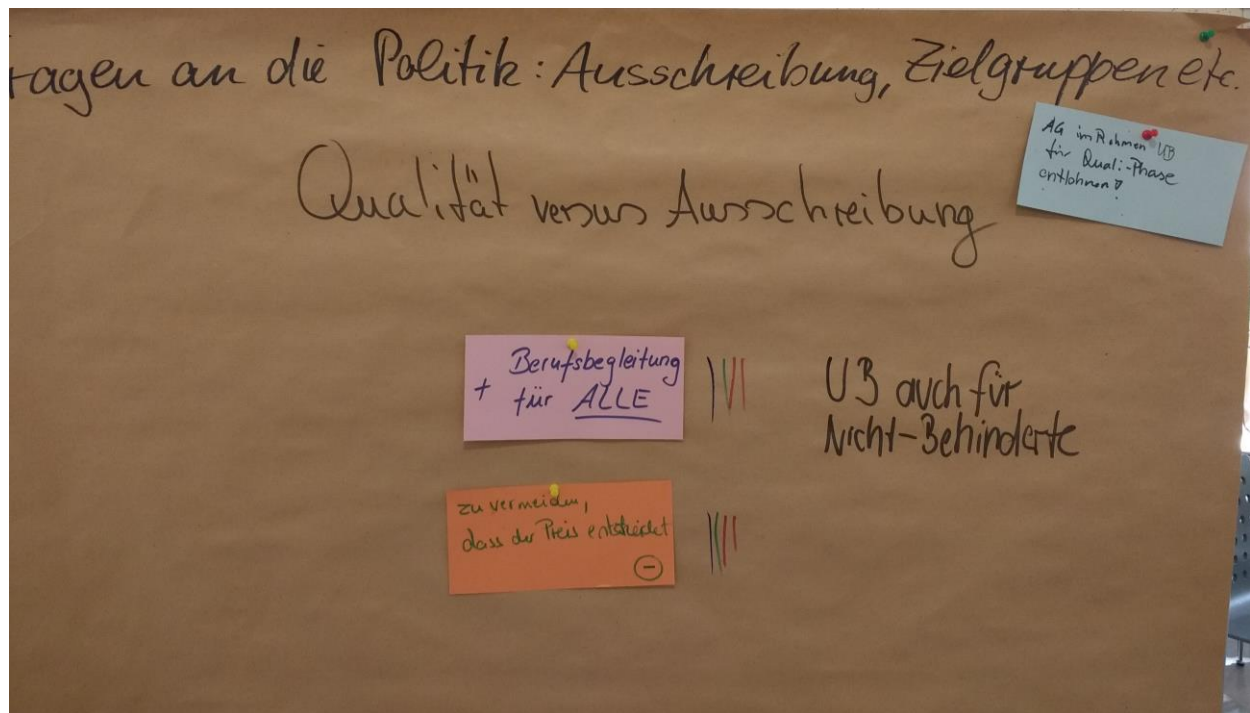 ragen an die Politik: Ausschreibung, Zielgruppen etc.
AG im Rahmen UB
für Quali-Phase
entlohnen!
Qualität versus Ausschreibung
+ Berufsbegleitung
für ALLE
UB auch für
Nicht-Behinderte
zu vermeiden,
dass der Preis entscheidet
-